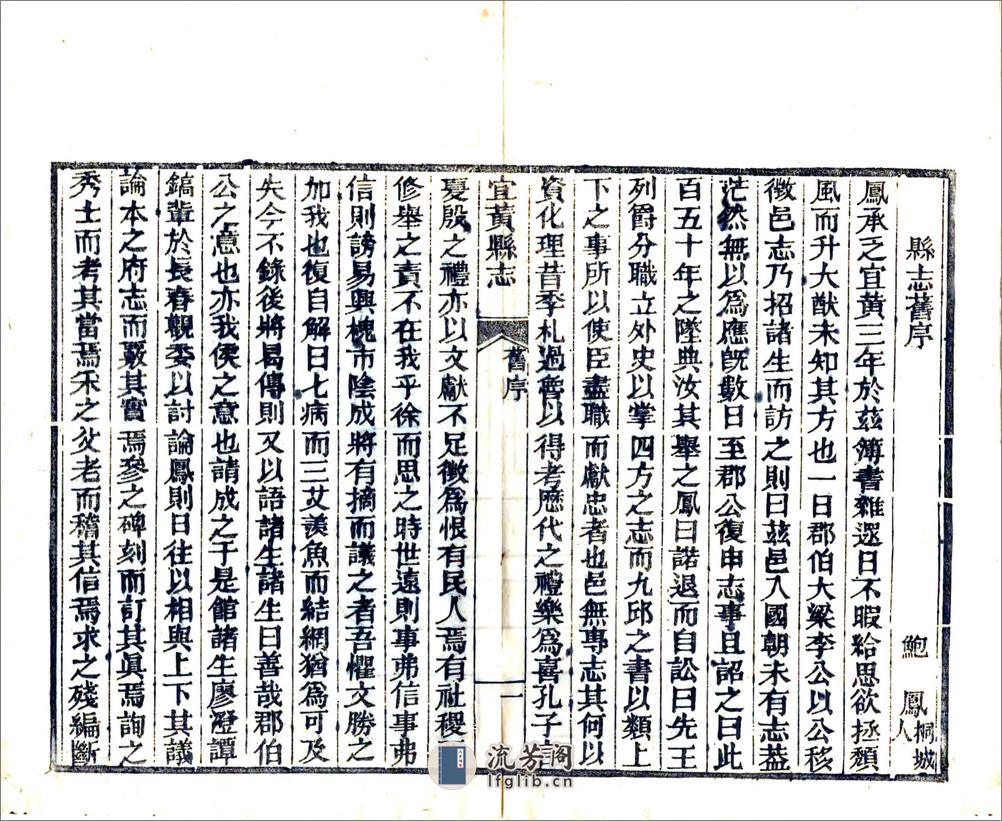 縣志舊序
鮑　鳳桐城人
鳳承乏宜黃三年於茲簿書雜遝日不暇給思欲拯頹
風而升大猷未知其方也一日郡伯大梁李公以公移
徵邑志乃招諸生而訪之則曰茲邑入國朝未有志蓋
茫然無以爲應旣數日至郡公復申志事且詔之曰此
百五十年之墜典汝其舉之鳳曰諾退而自訟曰先王
列爵分職立外史以掌四方之志而九邱之書以類上
下之事所以使臣盡職而獻忠者也邑無專志其何以
資化理昔季札過魯以得考歷代之禮樂爲喜孔子言
宜黃縣志
舊序
一
夏殷之禮亦以文獻不足徵爲恨有民人焉有社稷
修舉之責不在我乎徐而思之時世遠則事弗信事弗
信則謗易興槐市陰成將有摘而議之者吾懼文勝之
加我也復自解曰七病而三艾羡魚而結網猶爲可及
失今不錄後將曷傳則又以語諸生諸生曰善哉郡伯
公之意也亦我侯之意也請成之于是館諸生廖澄譚
鎬輩於長春觀委以討論鳳則日往以相與上下其議
論本之府志而覈其實焉參之碑刻而訂其眞焉詢之
秀士而考其當焉禾之父老而稽其信焉求之殘編斷
流芳阁
lfglib.cn